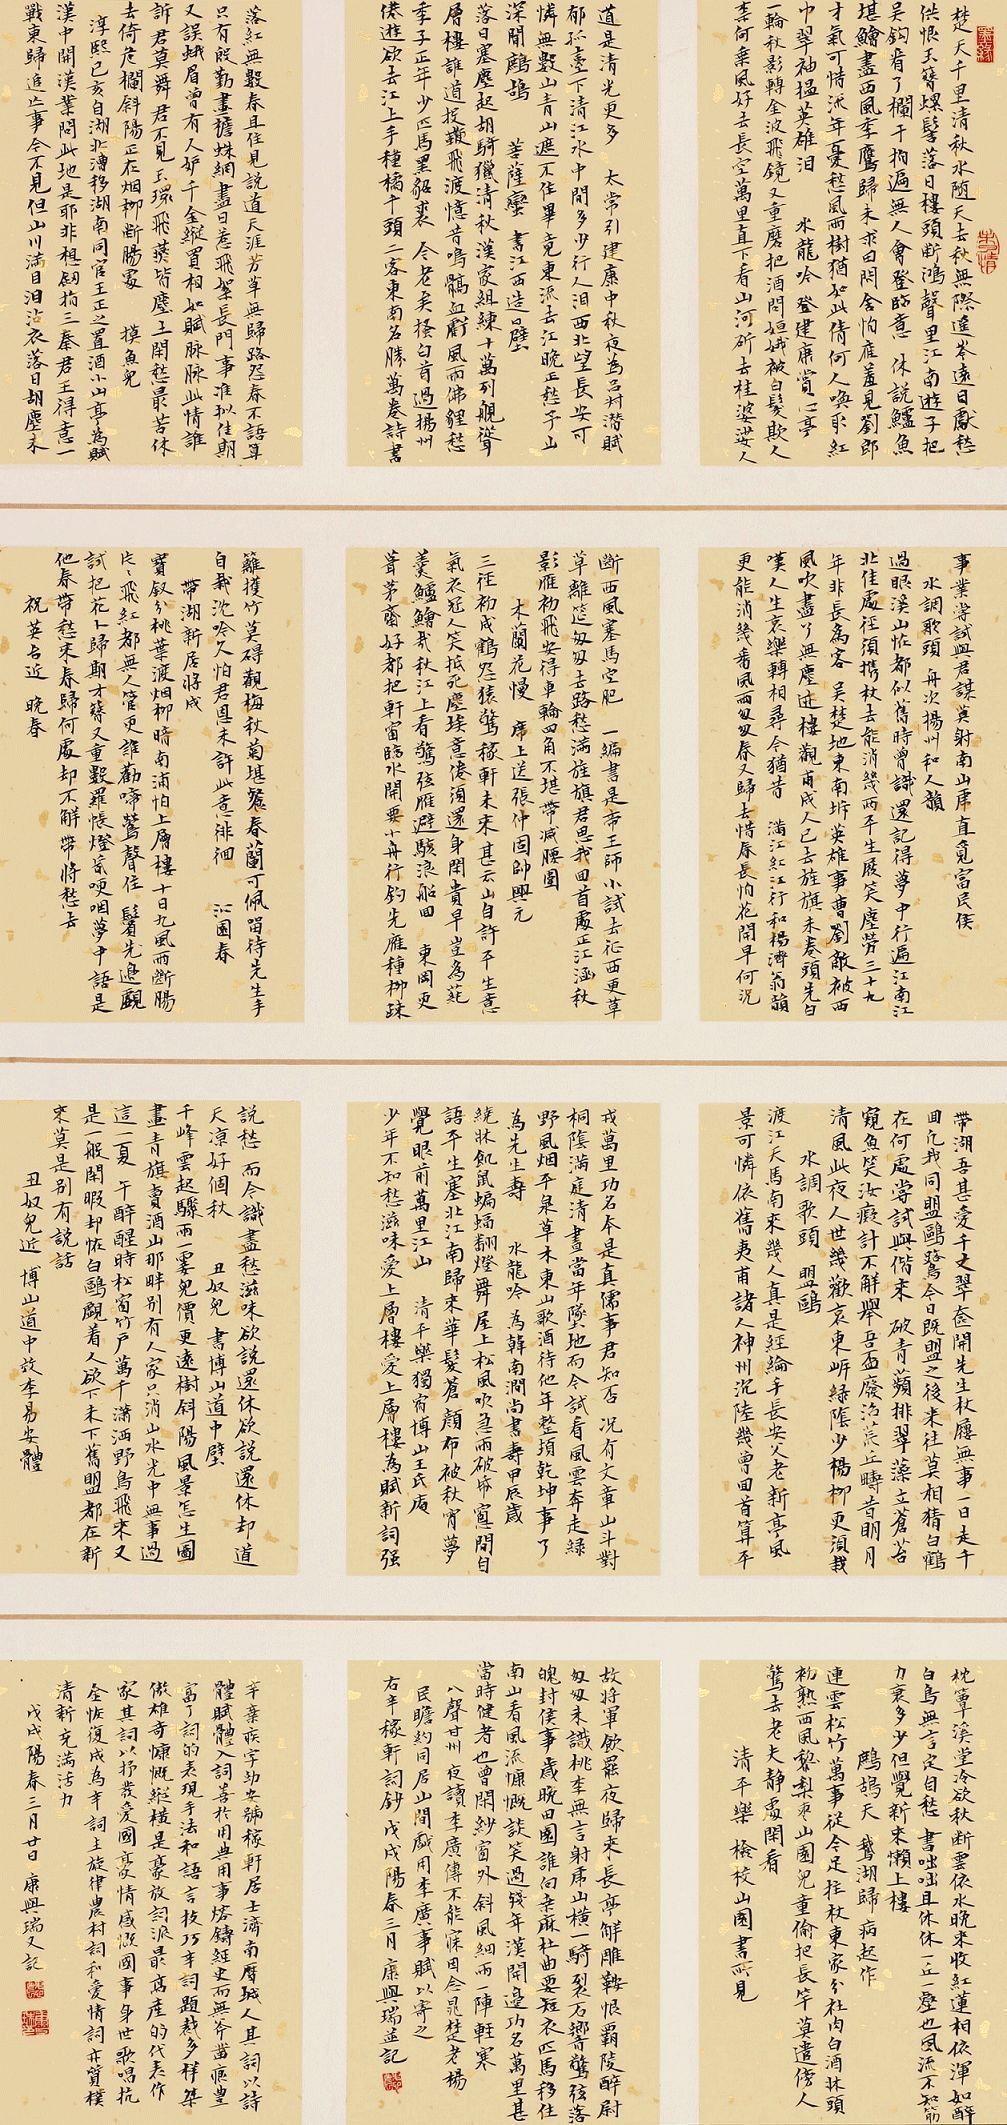 楚天千里清秋水随天去秋無際遥岑遠目獻愁
供恨玉簪螺髻落日樓頭断鴻聲里江南遊子把
吴鈎看了欄干拍遍無人會登臨意 休説鱸魚
堪鱠盡西風季鷹歸未求田問舍怕應羞見劉郎
才氣可惜流年憂愁風雨樹猶如此倩何人唤取紅
巾翠袖揾英雄泪 水龍吟 登建康賞心亭
一輪秋影轉金波飛鏡又重磨把酒問姮娥被白髮欺人
奈何乗風好去長空萬里直下看山河斫去桂婆娑人
道是清光更多 太常引建康中秋夜為吕叔潜賦
郁孤臺下清江水中間多少行人泪西北望長安可
憐無數山青山遮不住畢竟東流去江晚正愁予山
深聞鷓鴣 菩薩蠻 書江西造壁
落日塞塵起胡騎獵清秋漢家組練十萬列艦聳
層樓誰道投鞭飛渡憶昔鳴髇血汚風雨佛貍愁
季子正年少匹馬黑貂裘 今老矣搔白首過揚州
倦遊欲去江上手種橘千頭二客東南名勝萬卷詩書
落紅無數春且住見説道天涯芳草無歸路怨春不語算
只有殷勤畫檐蛛網盡日惹飛絮長門事准擬佳期
又誤蛾眉曾有人妒千金縱買相如賦脉脉此情誰
訴君莫舞君不見玉環飛燕皆塵土閑愁最苦休
去倚危欄斜陽正在烟柳断腸處 摸魚兒
淳熙己亥自湖北漕移湖南同官王正之置酒小山亭為賦
漢中開漢業問此地是耶非想劍指三秦君王得意一
戰東歸追亡事今不見但山川滿目泪沾衣落日胡塵未
事業嘗試與君謀莫射南山虎直覓富民侯
水調歌頭 舟次揚州和人韻
過眼溪山怪都似舊時曾識還記得夢中行遍江南江
北佳處徑須携杖去能消幾兩平生屐笑塵勞三十九
年非長為客 吴楚地東南坼英雄事曹劉敵被西
風吹盡了無塵迹樓觀甫成人已去旌旗未卷頭先白
嘆人生哀樂轉相尋今猶昔 滿江紅江行和楊濟翁韻
更能消幾番風雨匆匆春又歸去惜春長怕花開早何况
断西風塞馬空肥 一編書是帝王師小試去征西更草
草離筵匆匆去路愁滿旌旗君思我回首處正江涵秋
影雁初飛安得車輪四角不堪帶減腰圍
木蘭花慢 席上送張仲固帥興元
三徑初成鶴怨猿驚稼軒未來甚云山自許平生意
氣衣冠人笑抵死塵埃意倦須還身閑貴早豈為蒓
羹鱸鱠哉秋江上看驚弦雁避駭浪船回 東岡更
葺茅齋好都把軒窗臨水開要小舟行釣先應種柳疎
籬護竹莫碍觀梅秋菊堪餐春蘭可佩留待先生手
自栽沈吟久怕君恩未許此意徘徊 沁園春
帶湖新居將成
寶釵分桃葉渡烟柳暗南浦怕上層樓十日九風雨断腸
片片飛紅都無人管更誰勸啼鶯聲住 鬢先邊覷
試把花卜歸期才簪又重數羅帳燈昏哽咽夢中語是
他春帶愁來春歸何處却不解帶將愁去
祝英台近 晚春
帶湖吾甚愛千丈翠奩開先生杖屨無事一日走千
回凡我同盟鷗鷺今日既盟之後來往莫相猜白鶴
在何處嘗試與偕來 破青蘋排翠藻立蒼苔
窺魚笑汝癡計不解舉吾盃廢沼荒丘疇昔明月
清風此夜人世幾歡哀東岸緑陰少楊柳更須栽
水調歌頭 盟鷗
渡江天馬南來幾人真是經綸手長安父老新亭風
景可憐依舊夷甫諸人神州沉陸幾曾回首算平
戎萬里功名本是真儒事君知否 况有文章山斗對
桐陰滿庭清晝當年墜地而今試看風雲奔走緑
野風烟平泉草木東山歌酒待他年整頓乾坤事了
為先生壽 水龍吟 為韓南澗尚書壽甲辰歲
繞牀飢鼠蝙蝠翻燈舞屋上松風吹急雨破帋窗間自
語平生塞北江南歸來華髮蒼顏布被秋宵夢
覺眼前萬里江山 清平樂獨宿博山王氏庵
少年不知愁滋味愛上層樓愛上層樓為賦新詞强
説愁 而今識盡愁滋味欲説還休欲説還休却道
天凉好個秋 丑奴兒 書博山道中壁
千峰雲起驟雨一霎兒價更遠樹斜陽風景怎生圖
畫青旗賣酒山那畔别有人家只消山水光中無事過
這一夏 午醉醒時松窗竹户萬千瀟洒野鳥飛來又
是一般閑暇却怪白鷗覷着人欲下未下舊盟都在新
來莫是别有説話
丑奴兒近 博山道中效李易安體
枕簟溪堂冷欲秋断雲依水晚來收紅蓮相依渾如醉
白鳥無言定自愁 書咄咄且休休一丘一壑也風流不知筋
力衰多少但覺新來懶上樓
鷓鴣天 鵝湖歸 病起作
連雲松竹萬事從今足拄杖東家分社肉白酒牀頭
初熟西風黎棗山園兒童偷把長竿莫遣傍人
驚去老夫静處閑看
清平樂 檢校山園書所見
故將軍飲罷夜歸來長亭解雕鞍恨霸陵醉尉
匆匆未識桃李無言射虎山横一騎裂石響驚弦落
魄封侯事歲晚田園誰向桑麻杜曲要短衣匹馬移住
南山看風流慷慨談笑過殘年漢開邊功名萬里甚
當時健者也曾閑紗窗外斜風細雨一陣輕寒
八聲甘州 夜讀李廣傳不能寐因念晁楚老楊
民瞻約同居山間戲用李廣事賦以寄之
右辛稼軒詞鈔 戊戌陽春三月 康興瑞並記
辛棄疾字幼安號稼軒居士濟南歷城人其詞以詩
體賦體入詞善於用典用事熔鑄經史而無斧鑿痕豐
富了詞的表現手法和語言技巧辛詞題裁多样桀
傲雄奇慷慨縱横是豪放詞派最高産的代表作
家其詞以抒發愛國豪情感慨國事身世歌唱抗
金恢復成為辛詞主旋律農村詞和愛情詞亦質樸
清新充滿活力
戊戌陽春三月廿日 康興瑞又記